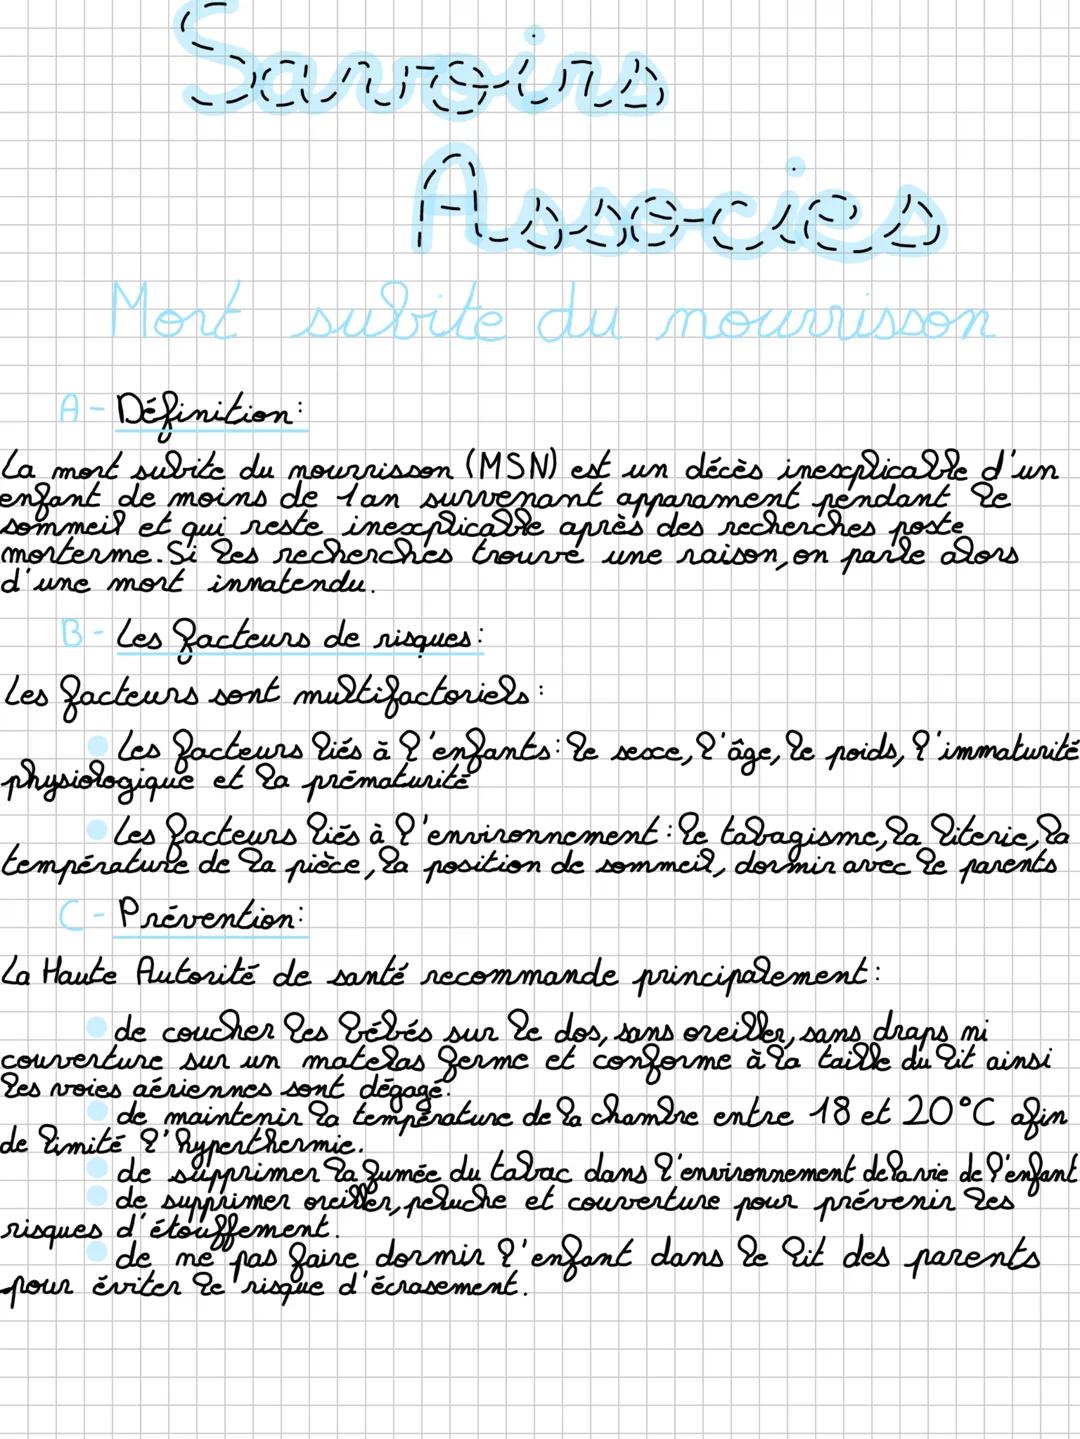 Savoirs
Associes
Mort subite du nourrisson
A - Définition:
La mort subite du nourrisson (MSN) est un décès inexplicable d'un
enfant de moins de 1an survenant apparament pendant le
sommeil et qui reste inexplicable après des recherches poste
morterme. Si les recherches trouve une raison, on parle alors
d'une mort innatendu.
B - Les facteurs de risques:
Les facteurs sont multifactoriels:
Les facteurs liés à l'enfants: le sexe, l'âge, le poids, l'immaturité
physiologique et la prématurité
Les facteurs liés à l'environnement: le tabagisme, la literie, la
température de la pièce, la position de sommeil, dormir avec le parents
C - Prévention:
La Haute Autorité de santé recommande principalement:
de coucher les bébés sur le dos, sans oreiller, sans draps ni
couverture sur un matelas ferme et conforme à la taille du lit ainsi
les voies aériennes sont dégagé.
de maintenir la température de la chambre entre 18 et 20°C afin
de limité l'hyperthermie.
de supprimer la fumée du tabac dans l'environnement de la vie de l'enfant
de supprimer oreiller, peluche et couverture pour prévenir les
risques d'étouffement.
de ne pas faire dormir l'enfant dans le lit des parents
pour éviter le risque d'écrasement.